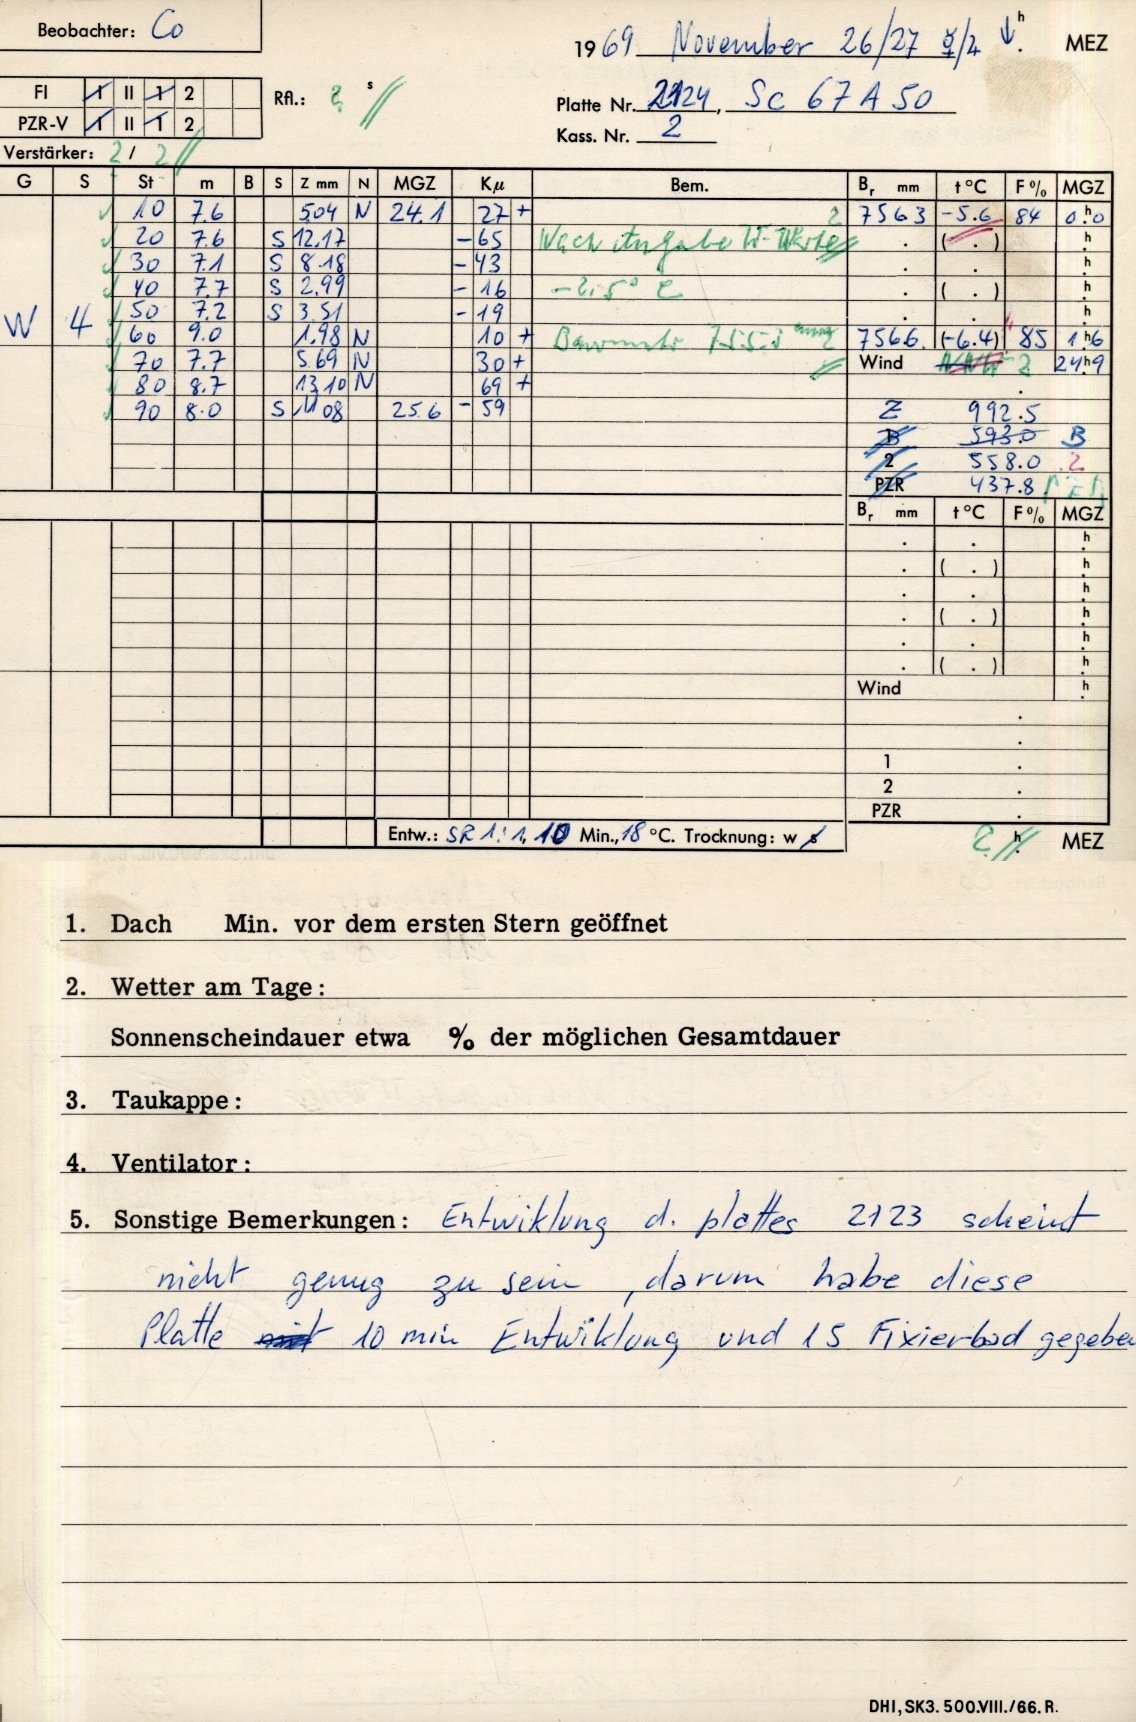 Beobachter: Co
1969 November 26/27 ☿/♃ ↓ h MEZ
FI I II 1 2
PZR-V I II 1 2
Rfl.: ? s
Platte Nr. 2124, Sc 67 A 50
Kass. Nr. 2
Verstärker: 2 / 2
G S St m B S Z mm N MGZ Kμ Bem. Br mm t °C F % MGZ
10 7.6 5.04 N 24.1 27 + 2 756.3 -5.6 84 0.h0
20 7.6 S 12.17 - 65 Nach Angabe W-Warte . ( . ) h
30 7.1 S 8.18 - 43 . . h
40 7.7 S 2.99 - 16 -2.5° C . ( . ) h
W 4 50 7.2 S 3.51 - 19 . . h
60 9.0 1.98 N 10 + 756.6 (-6.4) 85 1.h6
70 7.7 5.69 N 30 + Wind 2 24.h9
80 8.7 13.10 N 69 +
90 8.0 S 11.08 25.6 - 59 Z 992.5
B 593.0 B
2 558.0 2
PZR 437.8
Br mm t °C F % MGZ
. . h
. ( . ) h
. . h
. ( . ) h
. . h
. ( . ) h
Wind h
1 .
2 .
PZR .
Entw.: SR 1:1, 10 Min., 18 °C. Trocknung: w k
h MEZ
1. Dach Min. vor dem ersten Stern geöffnet
2. Wetter am Tage:
Sonnenscheindauer etwa % der möglichen Gesamtdauer
3. Taukappe:
4. Ventilator:
5. Sonstige Bemerkungen: Entwiklung d. plattes 2123 scheint
nicht genug zu sein, darum habe diese
Platte mit 10 min Entwiklung und 15 Fixierbad gegeben
DHI, SK3. 500.VIII./66. R.